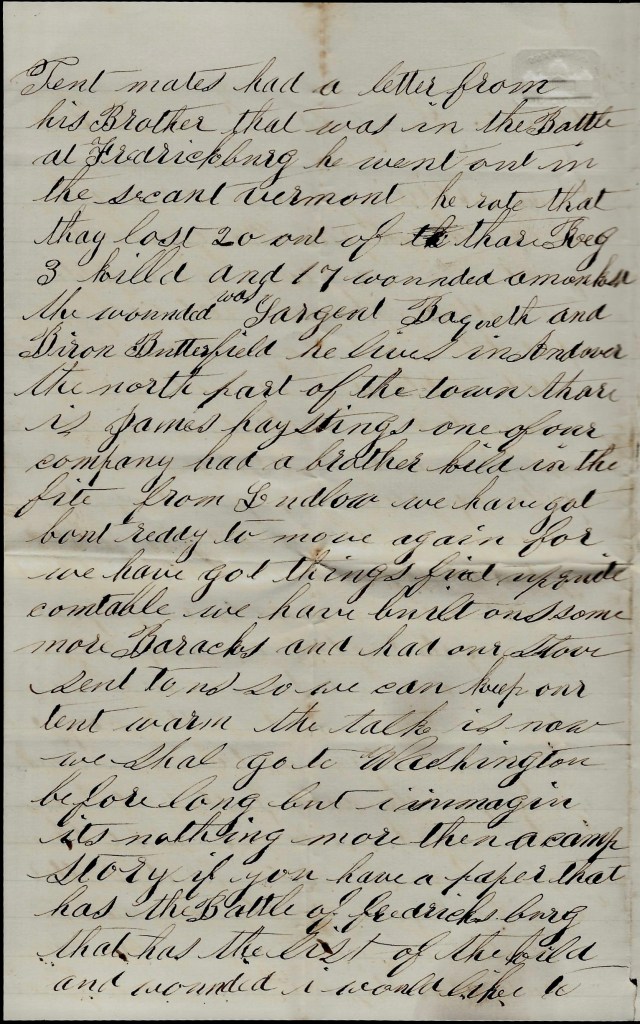 Tent mates had a letter from
his Brother that was in the Battle
at Fredrickburg he went out in
the secant vermont he rote that
thay lost 20 out of thare Reg
3 killd and 17 wounded amonkst
the wounded was Sargent and
Biron Butterfield he lives in Andover
the north part of the town thare
is James haystings one of our
company had a brother kild in the
fite from Ludlow we have got
bout reddy to move again for
we have got things fixt up quite
comtable we have built ous some
more Baracks and had our Stove
sent to us so we can keep our
tent warm the talk is now
we shal go to Washington
before long but i immagin
its nothing more then a camp
Story if you have a paper that
has the Battle of fredricksburg
that has the list of the kild
and wounded i would like to